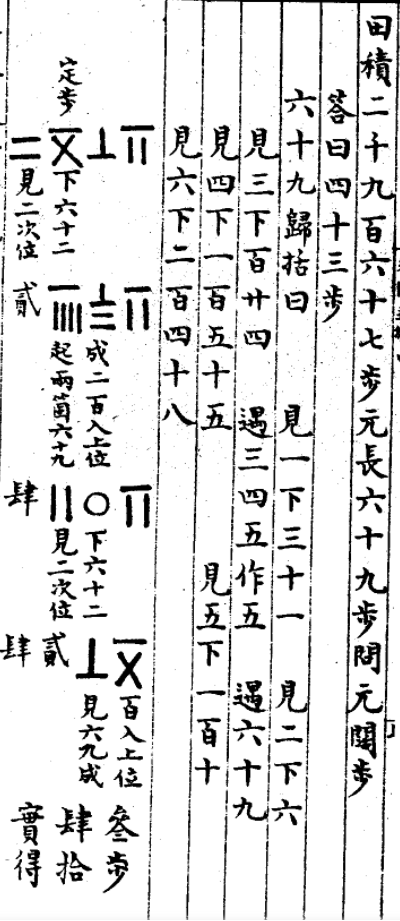 田積二千九百六十七步元長六十九步問元闊步
答曰四十三步
六十九歸括曰 見一下三十一 見二下六
見三下百廿四 遇三四五作五 遇六十九
見四下一百五十五 見五下一百十
見六下二百四十八
定步
下六十二
見二次位
成二百入上位
起兩箇六十九
貳
〇
下六十二
見二次位
肆
百入上位
見六九成
貳
肆
叄步
肆拾
實得